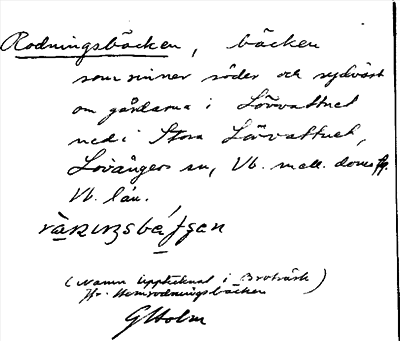 Rodningsbäcken, bäcken
som rinner söder och sydväst
om gårdarna i Lövvattnet
ned i Stora Lövvattnet,
Lövångers sn, Vb. mell. doms
Vb. län.
(Namn upptecknat i Broträsk)
Jfr. Hemrodningsbäcken
GHolm